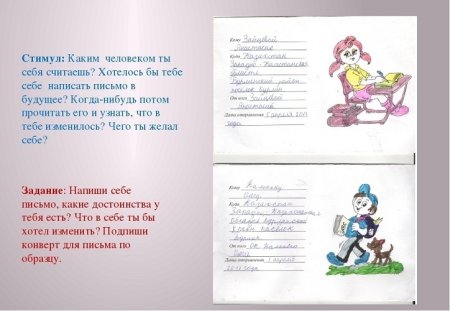 Стимул: Каким человеком ты
себя считаешь? Хотелось бы тебе
себе написать письмо в
будущее? Когда-нибудь потом
прочитать его и узнать, что в
тебе изменилось? Чего ты желал
себе?
Задание: Напиши себе
письмо, какие достоинства у
тебя есть? Что в себе ты бы
хотел изменить? Подпиши
конверт для письма по
образцу.
Кому Зайцевой
Анастасие
Куда Казахстан
Западно - Казахстанская
область
Бурлинский район
поселок Бурлин
От кого Зайцевой
Анастасии
Дата отправления 5 апреля
года
Кому
Олегу
Куда Казахстан
От кого
Дата отправления 1 апреля
года